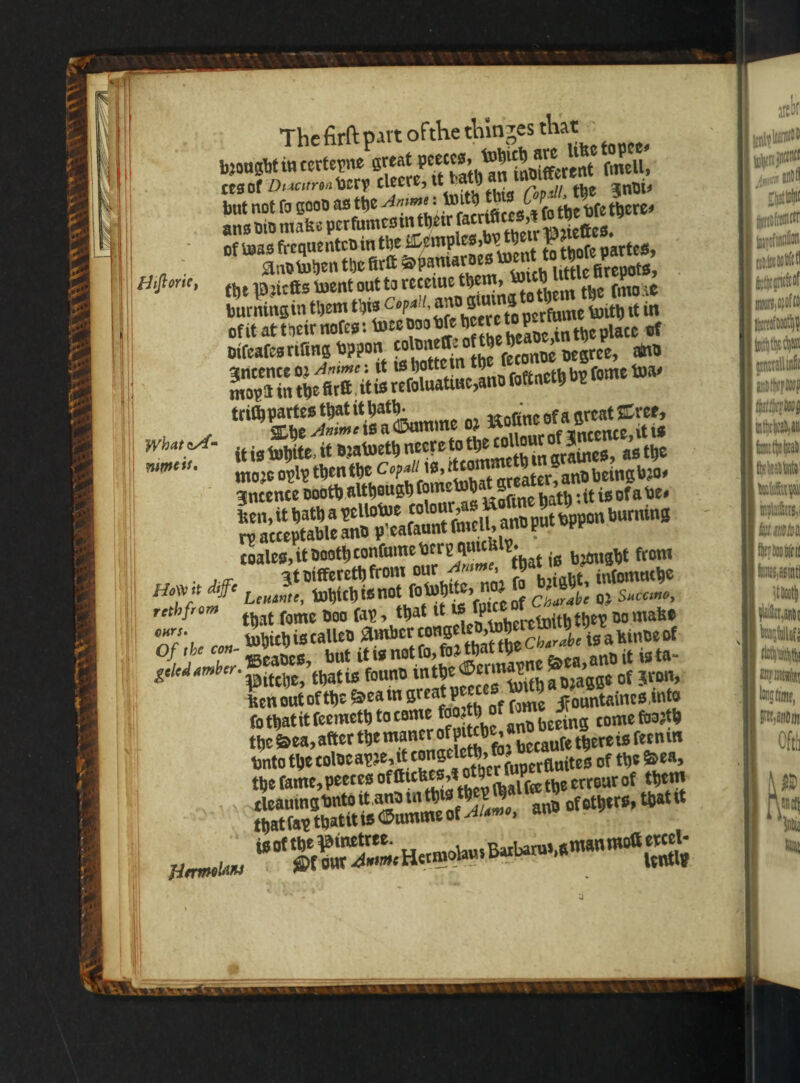 The first part of the thinges that
brought in certeyne great peeces, which are like to pee-
ces of Diacitron very cleere, it hath an indifferent smell,
but not so good as the Anime: with this Copall, the Indi-
ans did make perfumes in their sacrifices, & so the vse there-
of was frequented in the Temples, by their Priestes.
And when the first Spaniardes went to those partes,
Historie,
the Priests went out to receiue them, with little firepots,
burning in them this Copall, and giuing to them the smoke
of it at their noses: wee doo vse heere to perfume with it in
diseases rising vppon coldnesse of the heade, in the place of
Incence or Anime: it is hotte in the seconde degree, and
moyst in the first, it is resoluatiue, and softneth by some wa-
trish partes that it hath.
What A-
nime is.
The Anime is a Gumme or Rosine of a great Tree,
it is white, it draweth neere to the collour of Incence, it is
more oyly then the Copall is, it commeth in graines, as the
Incence dooth although somewhat greater, and being bro-
ken, it hath a yellowe colour, as Rosine hath: it is of a ve-
ry acceptable and pleasaunt smell, and put vppon burning
coales, it dooth consume very quickly.
How it diffe
reth from
ours.
It differeth from our Anime, that is brought from
Leuante, which is not so white, nor so bright, insomuche
that some doo say, that it is spice of Charabe or Succino,
which is called Amber congeled, wherewith they do make
Of the con-
geled amber.
Beades, but it is not so, for that the Charabe is a kinde of
Pitche, that is found in the Germayne Sea, and it is ta-
ken out of the Sea in great peeces with a dragge of Iron,
so that it seemeth to come foorth of some Fountaines into
the Sea, after the maner of pitche, and beeing come foorth
vnto the colde ayre, it congeleth, for because there is seen in
the same, peeces of stickes, & other superfluites of the Sea,
cleauing vnto it, and in this they shal see the errour of them
that say that it is Gumme of Alamo, and of others, that it
is of the Pinetree.
Hermolaus
Of our Anime Hermolaus Barbarus, a man most excel-
lently